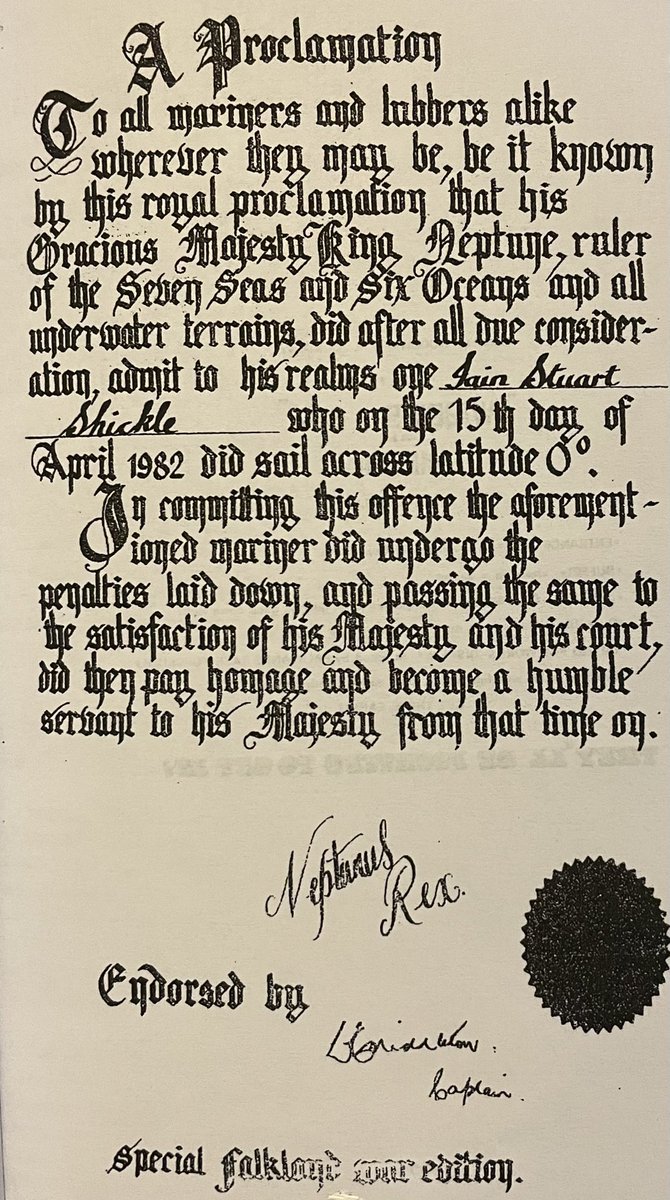 A Proclamation
To all mariners and lubbers alike
wherever they may be, be it known
by this royal proclamation that his
Gracious Majesty King Neptune, ruler
of the Seven Seas and Six Oceans and all
underwater terrains, did after all due consider-
ation, admit to his realms one Iain Stuart
Shickle who on the 15th day of
April 1982 did sail across latitude 0°.
In committing this offence the aforement-
ioned mariner did undergo the
penalties laid down, and passing the same to
the satisfaction of his Majesty and his court,
did then pay homage and become a humble
servant to his Majesty from that time on.
Neptunus
Rex.
Endorsed by
Captain.
Special Falkland war edition.